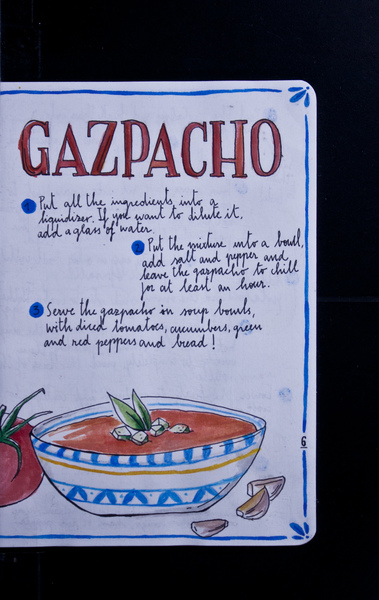 GAZPACHO
1 Put all the ingredients into a
liquidizer. If you want to dilute it,
add a glass of water.
2 Put the mixture into a bowl,
add salt and pepper and
leave the gazpacho to chill
for at least an hour.
3 Serve the gazpacho in soup bowls,
with diced tomatoes, cucumbers, green
and red peppers and bread!
6